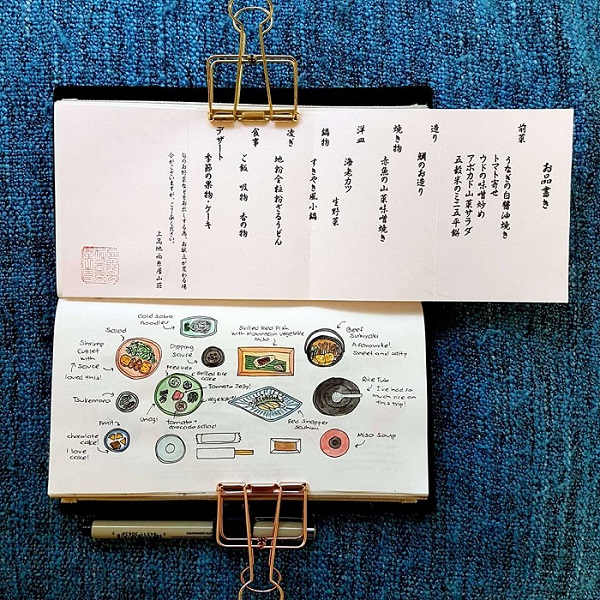 お品書き
前菜
うなぎの白醤油焼き
トマト寄せ
ウドの味噌炒め
アボカド山菜サラダ
五穀米のミニ五平餅
造り
鯛のお造り
焼き物
赤魚の山菜味噌焼き
洋皿
海老カツ 生野菜
鍋物
すきやき風小鍋
凌ぎ
地粉全粒粉ざるうどん
食事
ご飯 吸物 香の物
デザート
季節の果物・ケーキ
旬のお野菜などをお出しする為、お献立が変わる場
合がございますが、ご了承ください。
上高地西糸屋山荘
Cold Soba
Noodles
Salad
Shrimp
Cutlet
with
Sauce
loved this!
Dipping
Sauce
Grilled Red Fish
with Mountain Vegetable
Miso
Beef
Sukiyaki
A favourite!
Sweet and salty
Fried udo
Grilled rice
cake
Tomato Jelly!
Vegetables
Tsukemono
Unagi
tomato +
avocado salad
Red Snapper
Sashimi
Rice Tub
I've had so
much rice on
this trip!
Fruit
chocolate
cake!
I love
cake!
Miso Soup